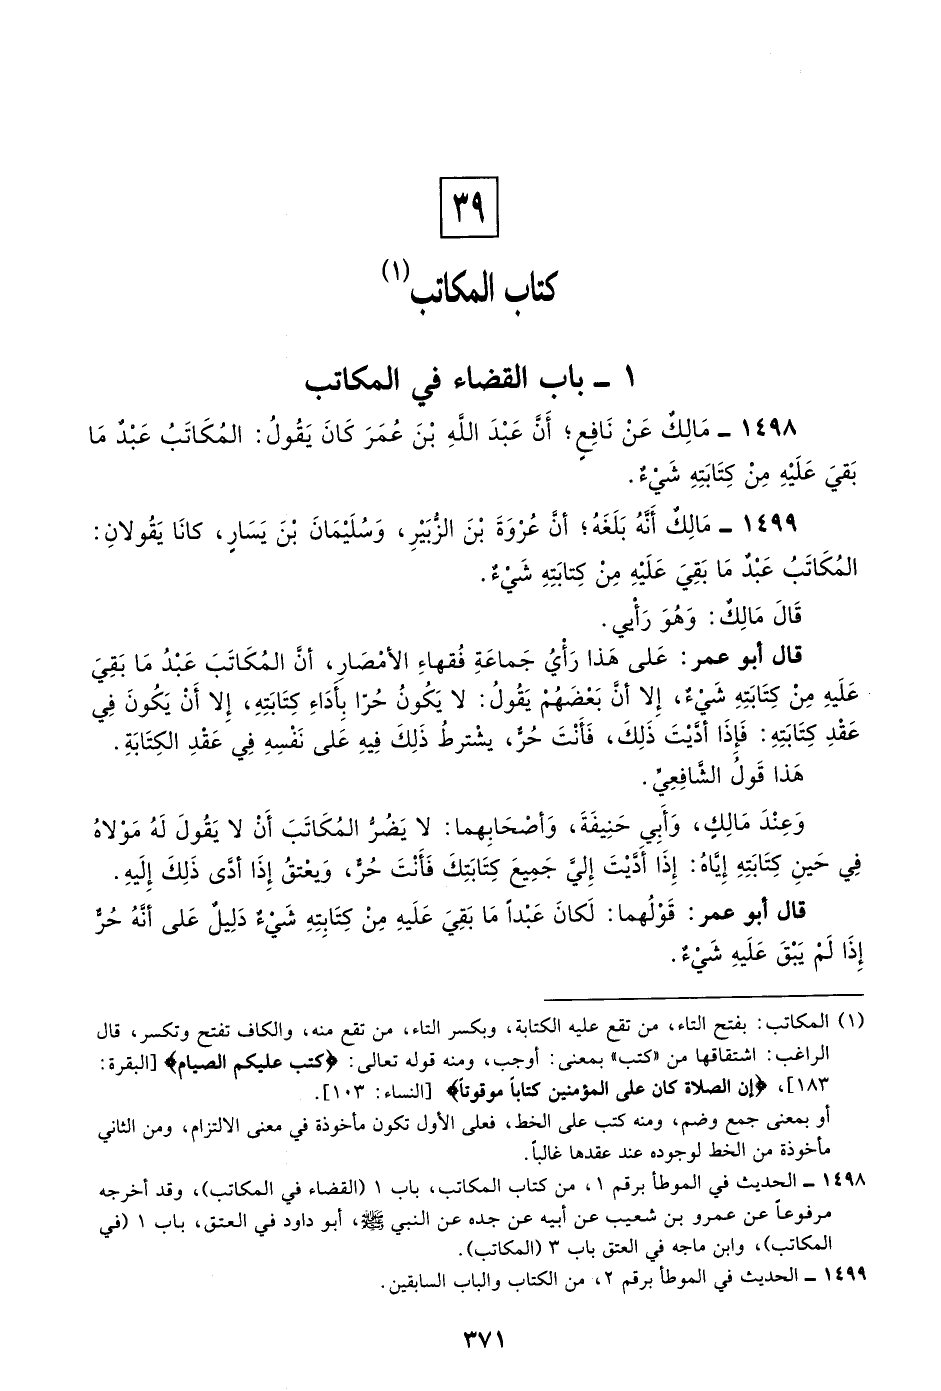 ٣٩
كتاب المكاتب(١)
١ ـ باب القضاء في المكاتب
١٤٩٨ ـ مَالِكٌ عَنْ نَافِعٍ؛ أَنَّ عَبْدَ اللَّهِ بْنَ عُمَرَ كَانَ يَقُولُ: المُكَاتَبُ عَبْدٌ مَا
بَقيَ عَلَيْهِ مِنْ كِتَابَتِهِ شَيْءٌ.
١٤٩٩ ـ مَالِكٌ أَنَّهُ بَلَغَهُ؛ أنَّ عُرْوَةَ بْنَ الزُّبَيْرِ، وَسُلَيْمَانَ بْنَ يَسَارٍ، كانَا يَقُولانِ:
المُكَاتَبُ عَبْدٌ مَا بَقِيَ عَلَيْهِ مِنْ كِتابَتِهِ شَيْءٌ.
قَالَ مَالِكٌ: وَهُوَ رَأْيي.
قال أبو عمر: عَلى هَذا رَأْيُ جَماعَةِ فُقهاءِ الأمْصَارِ، أنَّ المُكَاتَبَ عَبْدُ مَا بَقِيَ
عَلَيهِ مِنْ كِتَابَتِهِ شَيْءٌ، إِلا أنَّ بَعْضَهُمْ يَقُولُ: لا يَكُونُ حُرّا بِأدَاءِ كِتَابَتِهِ، إِلا أَنْ يَكُونَ فِي
عَقْدِ كِتَابَتِهِ: فَإِذَا أَدَّيْتَ ذَلِكَ، فَأَنْتَ حُرٌّ، يشْترطُ ذَلِكَ فِيهِ عَلى نَفْسِهِ فِي عَقْدِ الكِتَابَةِ.
هَذا قَولُ الشَّافِعِيِّ.
وَعِنْدَ مَالِكٍ، وَأَبِي حَنِيفَةَ، وَأَصْحَابِهما: لا يَضُرُّ المُكَاتَبَ أَنْ لا يَقُولَ لَهُ مَوْلاهُ
فِي حَينِ كِتَابَتِهِ إِيَّاهُ: إِذَا أَدَّيْتَ إِليَّ جَمِيعَ كِتَابَتِكَ فَأَنْتَ حُرٌّ، وَيعْتقُ إِذَا أدَّى ذَلِكَ إِلَيهِ.
قال أبو عمر: قَوْلُهما: لَكانَ عَبْداً مَا بَقِيَ عَلَيهِ مِنْ كِتابِتِهِ شَيْءٌ دَلِيلٌ عَلى أنَّهُ حُرٌّ
إِذَا لَمْ يَبْقَ عَلَيهِ شَيْءٌ.
(١) المكاتب: بفتح التاء، من تقع عليه الكتابة، وبكسر التاء، من تقع منه، والكاف تفتح وتكسر، قال
الراغب: اشتقاقها من «كتب» بمعنى: أوجب، ومنه قوله تعالى: ﴿كتب عليكم الصيام﴾ [البقرة:
١٨٣]، ﴿إن الصلاة كان على المؤمنين كتاباً موقوتاً﴾ [النساء: ١٠٣].
أو بمعنى جمع وضم، ومنه كتب على الخط، فعلى الأول تكون مأخوذة في معنى الالتزام، ومن الثاني
مأخوذة من الخط لوجوده عند عقدها غالباً.
١٤٩٨ ـ الحديث في الموطأ برقم ١، من كتاب المكاتب، باب ١ (القضاء في المكاتب)، وقد أخرجه
مرفوعاً عن عمرو بن شعيب عن أبيه عن جده عن النبي ﷺ، أبو داود في العتق، باب ١ (في
المكاتب)، وابن ماجه في العتق باب ٣ (المكاتب).
١٤٩٩ ـ الحديث في الموطأ برقم ٢، من الكتاب والباب السابقين.
٣٧١